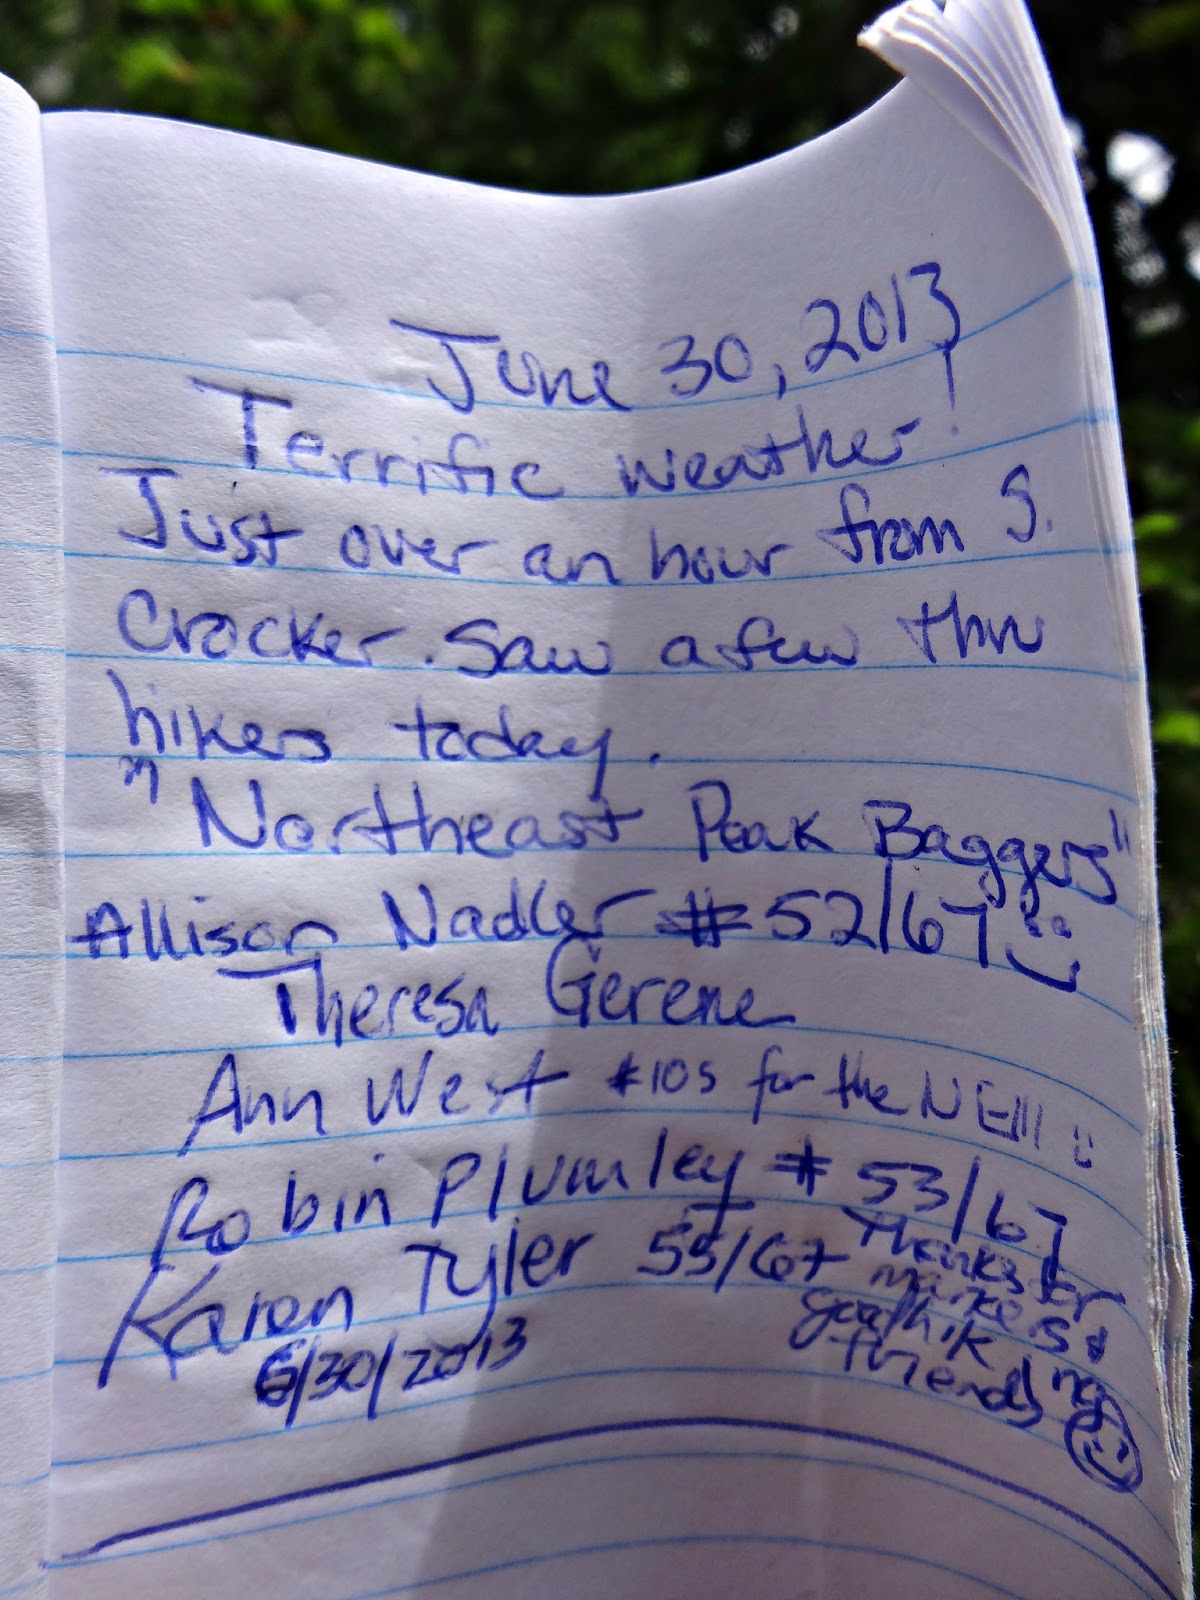 June 30, 2013
Terrific weather!
Just over an hour from S.
Crocker. Saw a few thru
hikers today.
"Northeast Peak Baggers"
Allison Nadler #52/67
Theresa Gerene
Ann West #105 for the NE!!!! :)
Robin Plumley # 53/67
Karen Tyler 55/67
6/30/2013
Thanks for
markers &
good hiking
friends